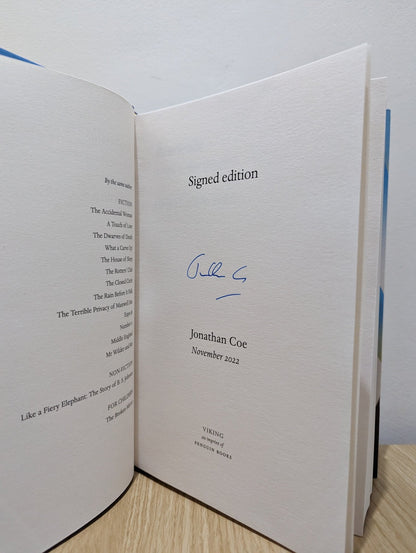 By the same author
FICTION
The Accidental Woman
A Touch of Love
The Dwarves of Death
What a Carve Up!
The House of Sleep
The Rotters' Club
The Closed Circle
The Rain Before It Falls
The Terrible Privacy of Maxwell Sim
Expo 58
Number 11
Middle England
Mr Wilder and Me
NON-FICTION
Like a Fiery Elephant: The Story of B. S. Johnson
FOR CHILDREN
The Broken Mirror
Signed edition
Jonathan Coe
November 2022
VIKING
an imprint of
PENGUIN BOOKS